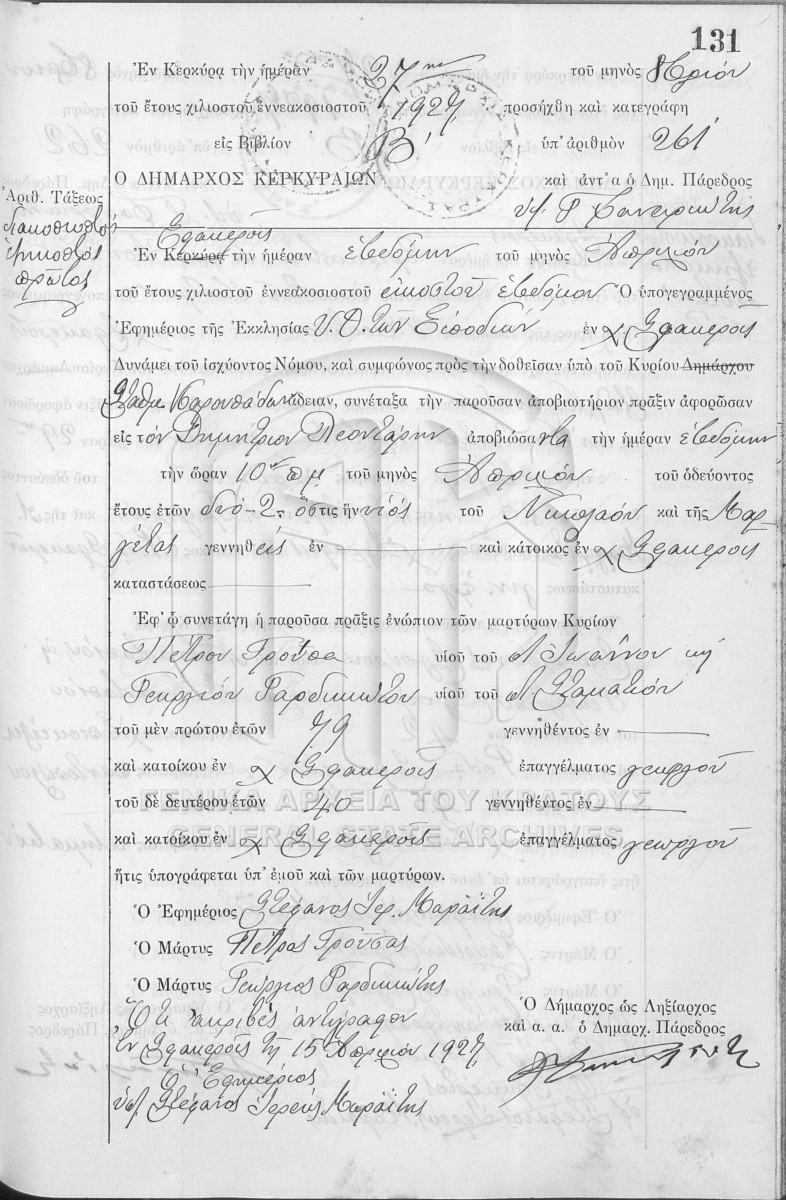 131
Ἐν Κερκύρᾳ τὴν ἡμέραν 27ην τοῦ μηνὸς
τοῦ ἔτους χιλιοστοῦ ἐννεακοσιοστοῦ 1927 προσήχθη καὶ κατεγράφη
εἰς Βιβλίον Β' ὑπ' ἀριθμὸν 261
Ο ΔΗΜΑΡΧΟΣ ΚΕΡΚΥΡΑΙΩΝ καὶ ἀντ'α ὁ Δημ. Πάρεδρος
Ἀριθ. Τάξεως
διακόσιοστὸς
ἑξηκοστὸς
πρῶτος
Σφακερᾶς
Ἐν Κερκύρᾳ τὴν ἡμέραν ἑβδόμην τοῦ μηνὸς Ἀπριλίου
τοῦ ἔτους χιλιοστοῦ ἐννεακοσιοστοῦ εἰκοστοῦ ἑβδόμου Ὁ ὑπογεγραμμένος
Ἐφημέριος τῆς Ἐκκλησίας Υ. Θ. τῶν Εἰσοδίων ἐν χ Σφακερᾶς
Δυνάμει τοῦ ἰσχύοντος Νόμου, καὶ συμφώνως πρὸς τὴν δοθεῖσαν ὑπὸ τοῦ Κυρίου Δημάρχου
ἄδειαν, συνέταξα τὴν παροῦσαν ἀποβιωτήριον πρᾶξιν ἀφορῶσαν
εἰς τὸν Δημήτριον Λεοντάρην ἀποβιώσαντα τὴν ἡμέραν ἑβδόμην
τὴν ὥραν 10ην πμ τοῦ μηνὸς Ἀπριλίου τοῦ ὁδεύοντος
ἔτους ἐτῶν δύο-2, ὅστις ἦν υἱὸς τοῦ Νικολάου καὶ τῆς Μαρ-
γέτας γεννηθεὶς ἐν καὶ κάτοικος ἐν χ Σφακερᾶς
καταστάσεως
Ἐφ' ᾧ συνετάγη ἡ παροῦσα πρᾶξις ἐνώπιον τῶν μαρτύρων Κυρίων
Πέτρου Γρούσα υἱοῦ τοῦ Ἰωάννου κὴ
Γεωργίου Ραρδικιώτου υἱοῦ τοῦ Σταματίου
τοῦ μὲν πρώτου ἐτῶν 79 γεννηθέντος ἐν
καὶ κατοίκου ἐν χ Σφακερᾶς ἐπαγγέλματος γεωργοῦ
τοῦ δὲ δευτέρου ἐτῶν 40 γεννηθέντος ἐν
ΓΕΝΙΚΑ ΑΡΧΕΙΑ ΤΟΥ ΚΡΑΤΟΥΣ
GENERAL STATE ARCHIVES
καὶ κατοίκου ἐν χ Σφακερᾶς ἐπαγγέλματος γεωργοῦ
ἥτις ὑπογράφεται ὑπ' ἐμοῦ καὶ τῶν μαρτύρων.
Ὁ Ἐφημέριος Στέφανος Ἱερ. Μαραΐτης
Ὁ Μάρτυς Πέτρος Γρούσας
Ὁ Μάρτυς Γεώργιος Ραρδικιώτης
Ὅτι ἀκριβὲς ἀντίγραφον
Ὁ Δήμαρχος ὡς Ληξίαρχος
ἐν Σφακερᾶς τῇ 15 Ἀπριλίου 1927
καὶ α. α. ὁ Δημαρχ. Πάρεδρος
Ὁ Ἐφημέριος
ὑπ. Στέφανος Ἱερεὺς Μαραΐτης